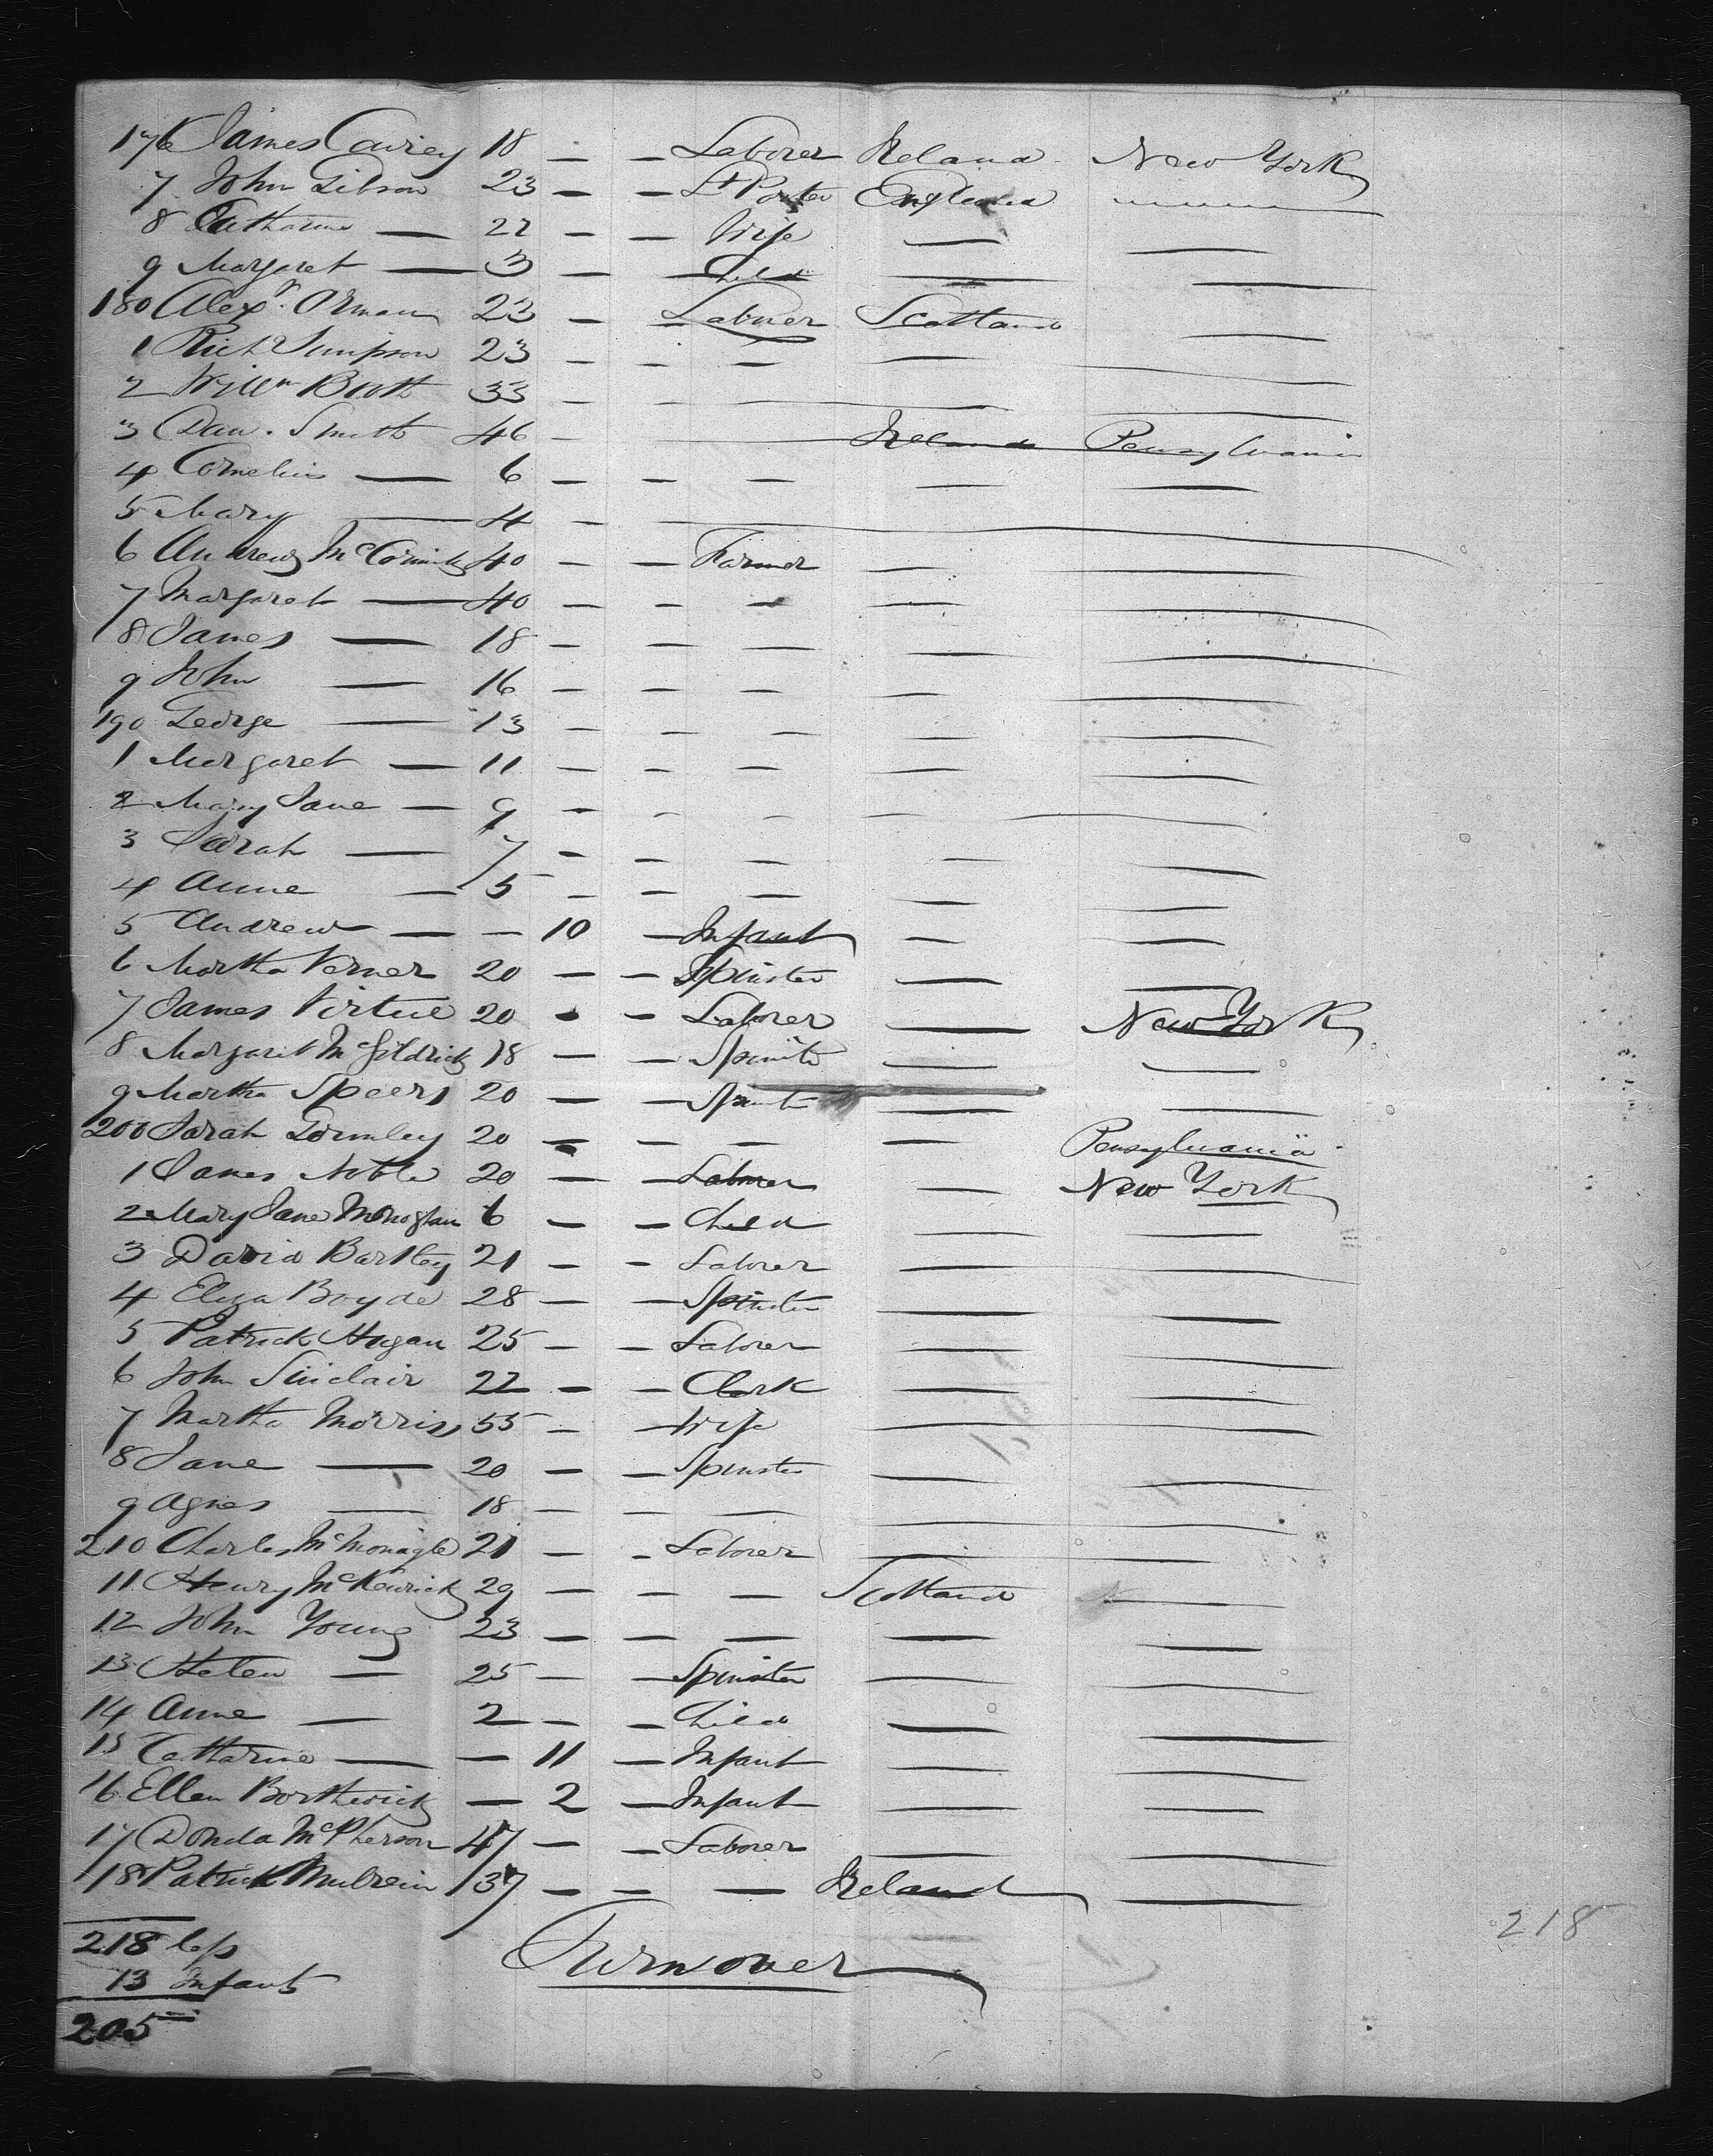 176 James Cairey 18 — — Laborer Ireland New York
7 John Gibson 23 — — Lt Porter England "
8 Catharine — 22 — — Wife — —
9 Margaret — 3 — — Child — —
180 Alexr. Orman 23 — — Laborer Scotland —
1 Richd Simpson 23 — — — — —
2 Willm Brott 33 — — — —
3 Dan. Smith 46 — — Ireland Pensylvania
4 Cornelius — 6 — — — — —
5 Mary — 4 — —
6 Andrew McCormick 40 — — Farmer — —
7 Margaret — 40 — — — — —
8 James — 18 — — — — —
9 John — 16 — — — — —
190 George — 13 — — — — —
1 Margaret — 11 — — — — —
2 Mary Jane — 9 — — — — —
3 Sarah — 7 — — — — —
4 Anne — 5 — — — — —
5 Andrew — — 10 — Infant — —
6 Martha Verner 20 — — Spinster — —
7 James Virtue 20 — — Laborer — New York
8 Margaret McGildrick 18 — — Spinster — —
9 Martha Speers 20 — — Spinster — —
200 Sarah Gormley 20 — — — — Pensylvania
1 James Noble 20 — — Laborer — New York
2 Mary Jane Monoghan 6 — — Child — —
3 David Bartley 21 — — Laborer — —
4 Eliza Boyde 28 — — Spinster — —
5 Patrick Hogan 25 — — Laborer — —
6 John Sinclair 22 — — Clerk — —
7 Martha Morriss 55 — — Wife — —
8 Jane — 20 — — Spinster — —
9 Agnes — 18 — — — — —
210 Charles McMonagle 21 — — Laborer — —
11 Henry McKenrick 29 — — — Scotland —
12 John Young 23 — — — — —
13 Helen — 25 — — Spinster — —
14 Anne — 2 — — Child — —
15 Catharine — — 11 — Infant — —
16 Ellen Borthwick — 2 — Infant — —
17 Donda McPherson 47 — — Laborer — —
18 Patrick Mulrein 37 — — — Ireland —
218 less
13 Infants
205
Turnover
218